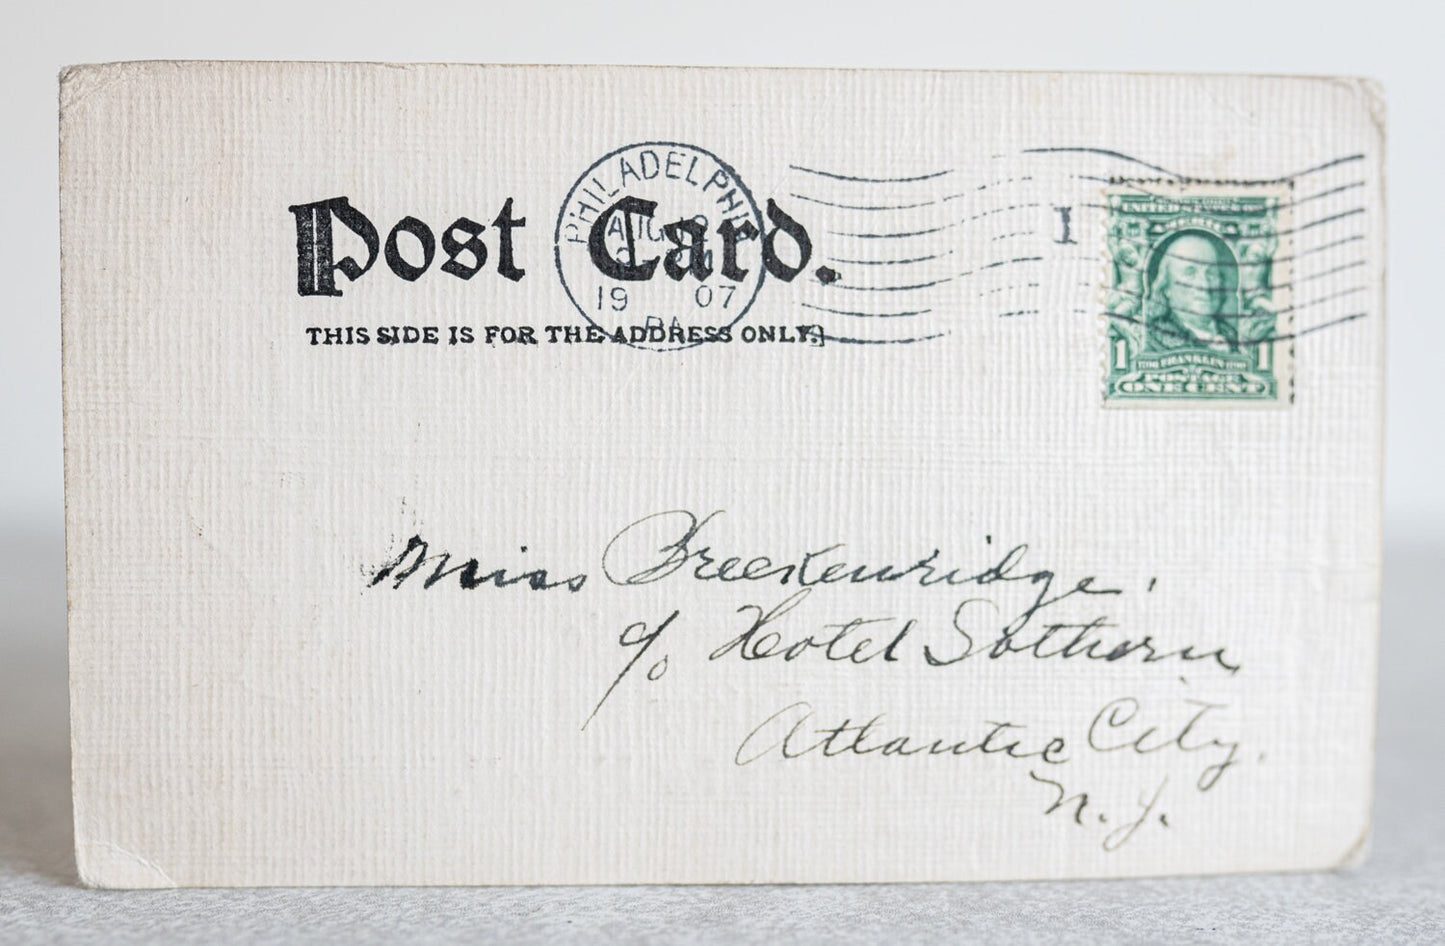 PHILADELPHIA
AUG 12
19 07
PA.
Post Card.
THIS SIDE IS FOR THE ADDRESS ONLY.
1
UNITED STATES OF
AMERICA
1 FRANKLIN 1
POSTAGE
ONE CENT
Miss Breckenridge,
c/o Hotel Sothern
Atlantic City.
N. J.